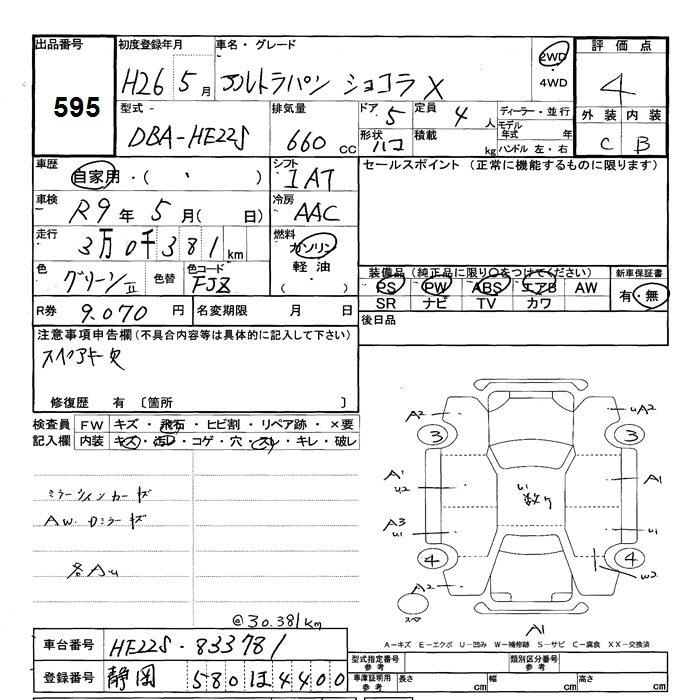 出品番号
595
初度登録年月
H26 5月
車名・グレード
アルトラパン ショコラ X
2WD
・
4WD
評価点
4
外装 内装
C B
型式
DBA-HE22S
排気量
660 cc
ドア 5
形状 ハコ
定員 4 人
積載 kg
ディーラー・並行
モデル年式 年
ハンドル 左・右
車歴
自家用・( )
シフト
IAT
セールスポイント (正常に機能するものに限ります)
車検
R9年 5月( 日)
冷房
AAC
走行
3万0千381km
燃料
ガソリン
軽油
( ・ )
色
グリーンⅡ
色替
色コード
FJZ
装備品(純正品に限り○をつけてください)
PS PW ABS エアB AW
SR ナビ TV カワ
新車保証書
有・無
R券 9.070 円
名変期限 月 日
後日品
注意事項申告欄(不具合内容等は具体的に記入して下さい)
スペアキー欠
修復歴 有 〔箇所 〕
検査員記入欄
FW キズ・飛石・ヒビ割・リペア跡・×要
内装 キズ・汚レ・コゲ・穴・スレ・キレ・破レ
ミラーウインカーキズ
AW.ドミラーキズ
各AU
@30.381km
A2 UA2
3 3
A1
U2
A1
U1
数ヶ
A3
U1
U1
4 4
A2 W2
スペア
A1
A－キズ E－エクボ U－凹み W－補修跡 S－サビ C－腐食 XX－交換済
車台番号 HE22S-833781
登録番号 静岡 580 ほ 4400
型式指定番号 参考
類別区分番号 参考
車庫証明用 参考
長さ cm
幅 cm
高さ cm